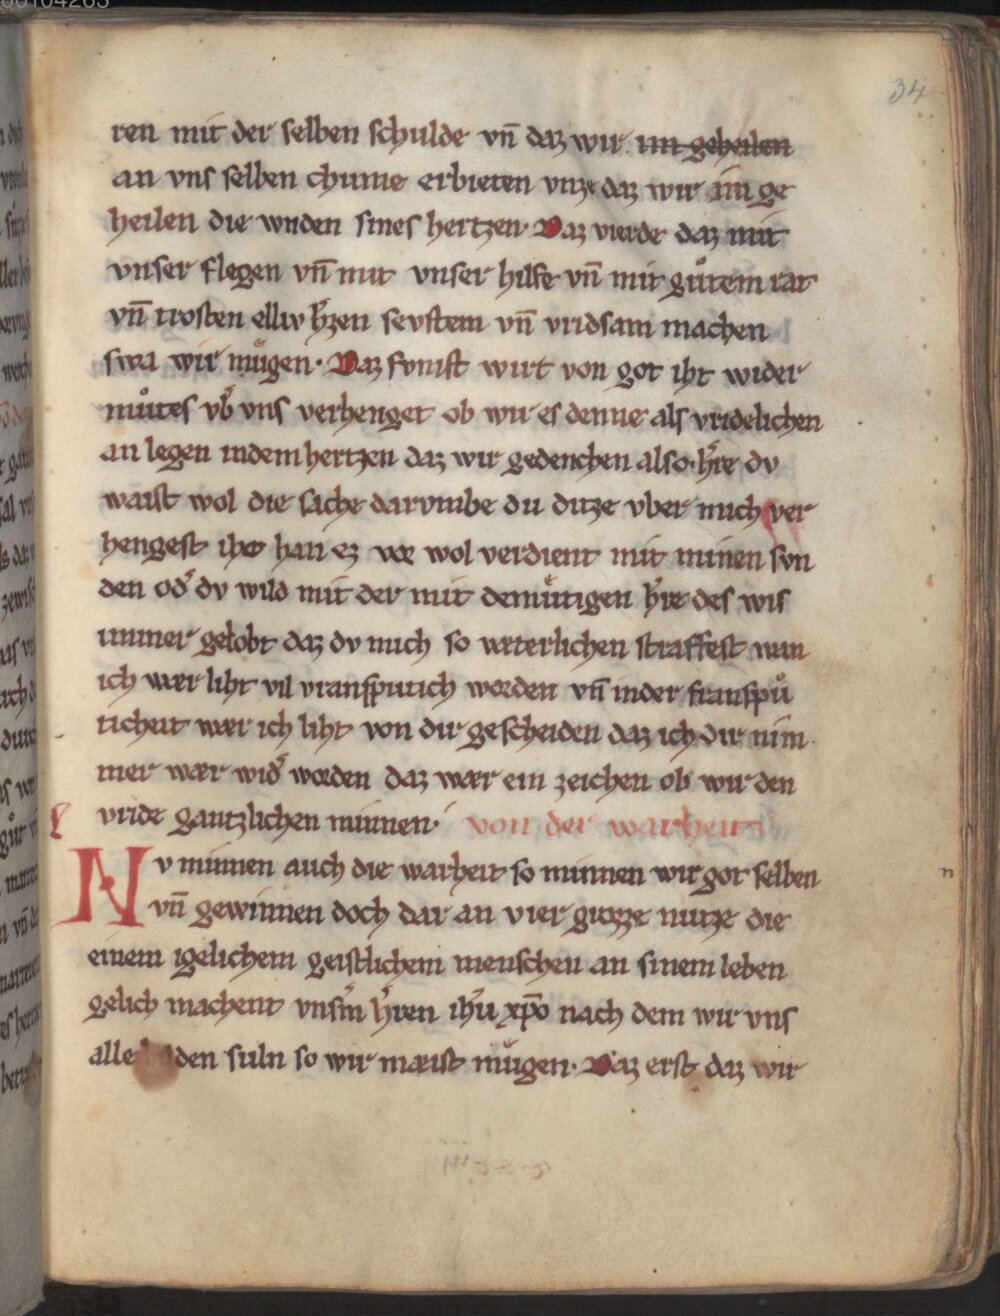 00104263
34
ren mit der selben schulde vn̄ daz wir im geheilen
an vns selben chume erbieten vnze daz wir im ge
heilen die wnden sines hertzen. Daz vierde daz mit
vnser flegen vn̄ mit vnser hilfe vn̄ mit gůtem rat
vn̄ trosten elliv h̄zen sevftem vn̄ vridsam machen
swa wir můgen. Daz fvnift wirt von got iht wider
můtes vb̄ vns verhenget ob wir es denne als vridelichen
an legen in dem hertzen daz wir gedenchen also. h̄re dv
waist wol die sache darvmbe du ditze vber mich ver
hengest iht han ez wol verdient mit minen svn
den od̄ dv wild mit der mit demůtigen h̄re des wis
immer gelobt daz dv mich so væterlichen straffest wan
ich wær liht vil vranspůtich worden vn̄ in der franspů
ticheit wær ich liht von dir gescheiden daz ich dir nim
mer wær wid̄ worden daz wær ein zeichen ob wir den
vride gantzlichen minnen. von der warheit
Nv minnen auch die warheit so minnen wir got selben
vn̄ gewinnen doch dar an vier grozze nutze die
einem igelichem geistlichem menschen an sinem leben
gelich machent vnsm̄ h̄ren ih̄u xp̄o nach dem wir vns
alle den suln so wir maist můgen. Daz erst daz wir